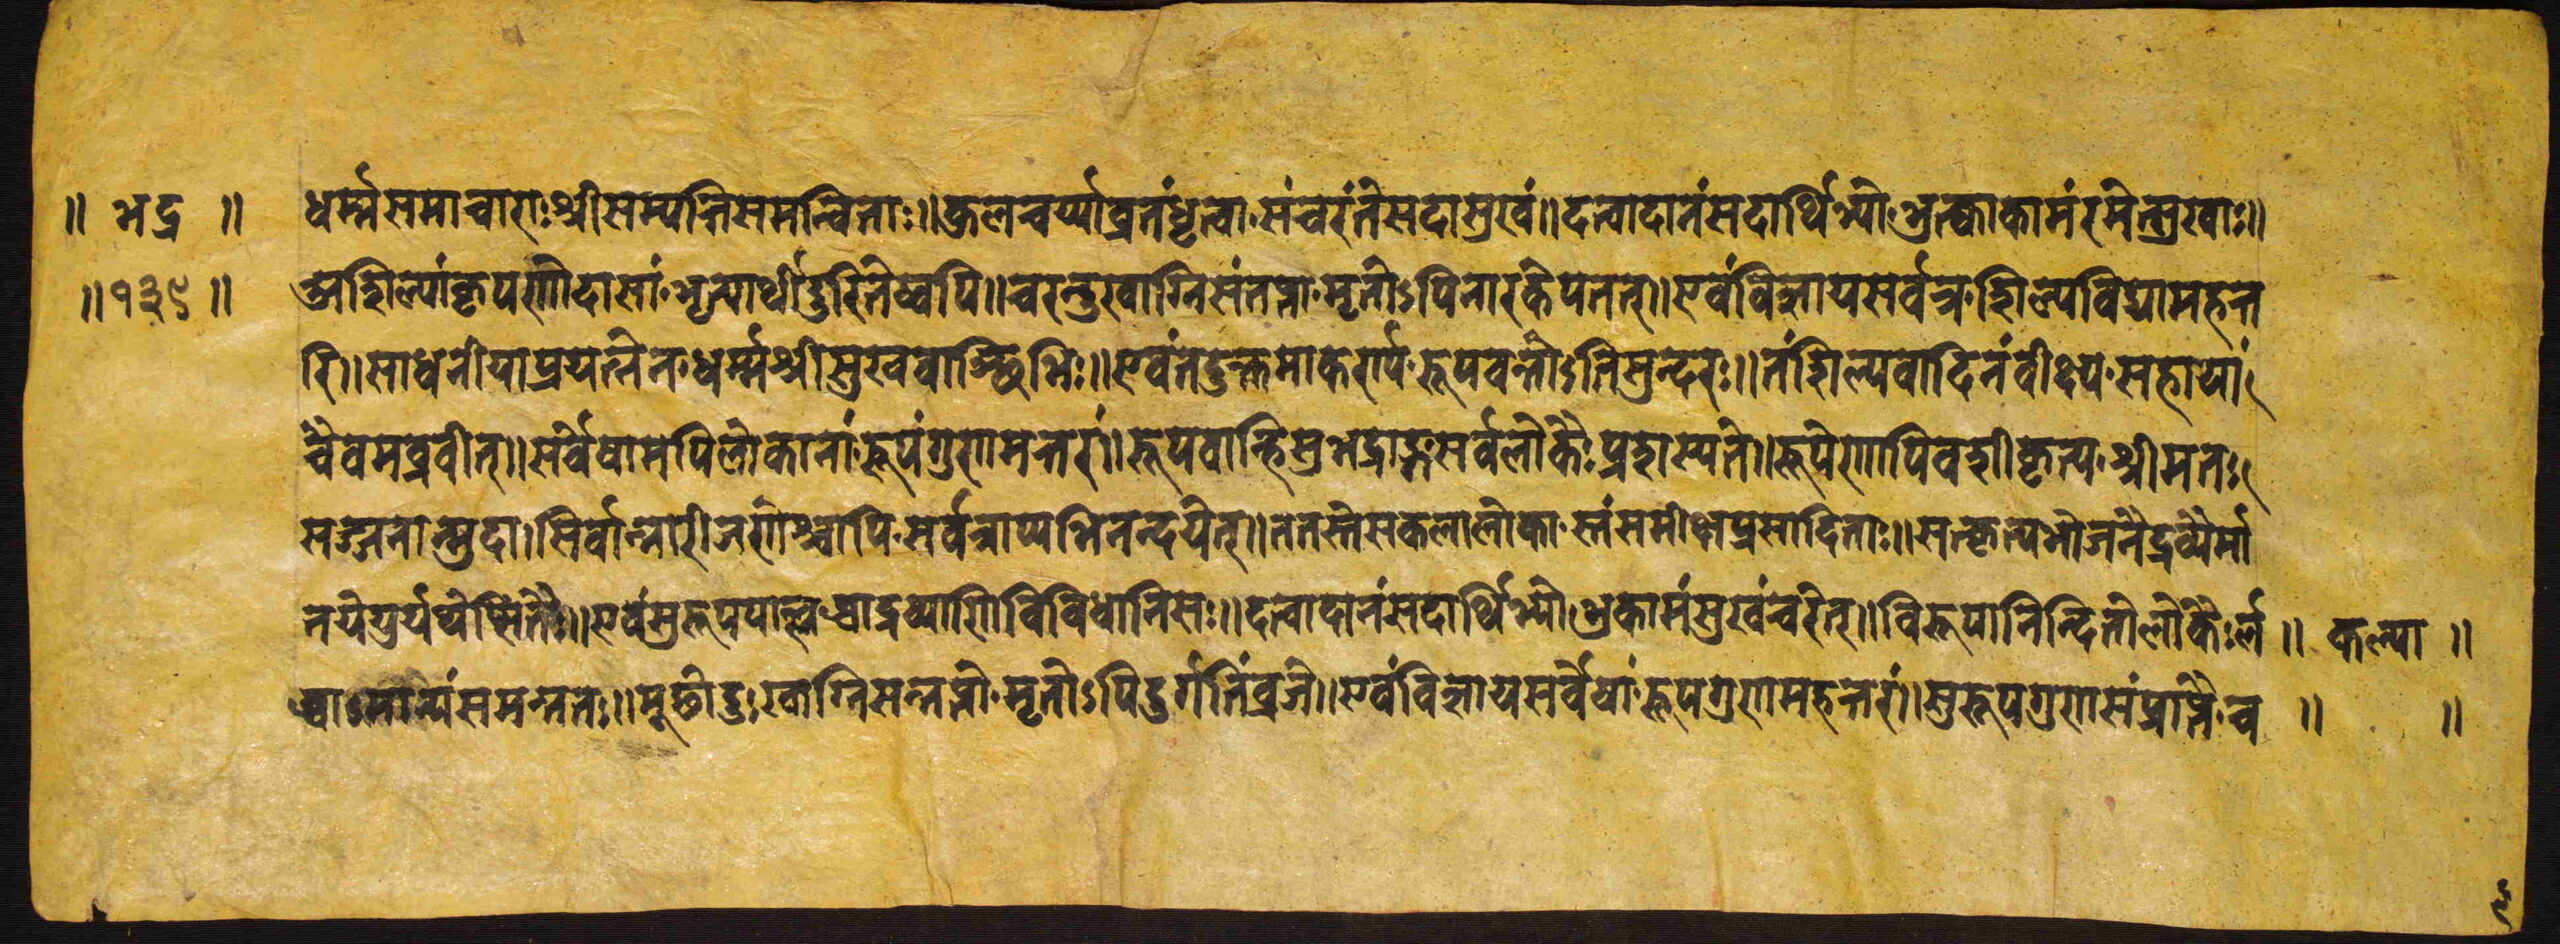 ॥ भद्र ॥ धर्म्मसमाचाराः श्रीसम्पत्तिसमन्विताः ॥ कुलचर्य्याव्रतं धृत्वा संचरंते सदा सुखं ॥ दत्वा दानं सदार्थिभ्यो भुक्त्वा कामं रमेत्सुखाः ॥
॥ १३९ ॥ अशिल्पा कृपणो दासां भृत्यार्थी दुरितेष्वपि ॥ चरन्दुखाग्निसंतप्ता मृतोऽपि नारके पतत् ॥ एवं विज्ञाय सर्वत्र शिल्पविद्यामहत्त
रि ॥ साधनीया प्रयत्नेन धर्म्मश्रीसुखवाञ्छिभिः ॥ एवं तेदुक्तमाकर्ण्य रूपवन्तोऽतिसुन्दरः ॥ तं शिल्पवादिनं वीक्ष्य सहायां
चैवमब्रवीत् ॥ सर्वेषामपि लोकानां रूपं गुणमन्तरां ॥ रूपवान्हि सुभद्राङ्ग सर्वलोकैः प्रशस्यते ॥ रूपेणापि वशीकृत्य श्रीमतः
सज्जनान्मुदा । सर्वान्नारीजणांश्चापि सर्वत्राप्यभिनन्दयेत् ॥ ततस्ते सकला लोका स्तं समीक्ष प्रसादिताः ॥ सत्कृत्य भोजनैर्द्रव्यैर्मा
नयेयुर्यथेप्सितैः ॥ एवं सुरूपपाल्लब्ध्वा द्रव्याणि विविधानि सः ॥ दत्वा दानं सदार्थिभ्यो भुकामं सुखं चरेत् ॥ विरूपा निन्दितो लोकैः र्ल ॥ कल्पा ॥
ब्धाऽमान्यं समन्ततः ॥ मूर्छा दुःखाग्निसन्तप्तो मृतोऽपि दुर्गतिं व्रजे ॥ एवं विज्ञाय सर्वेषां रूपगुणमहत्तरां ॥ सुरूपगुणसंप्राप्तै च ॥ ॥